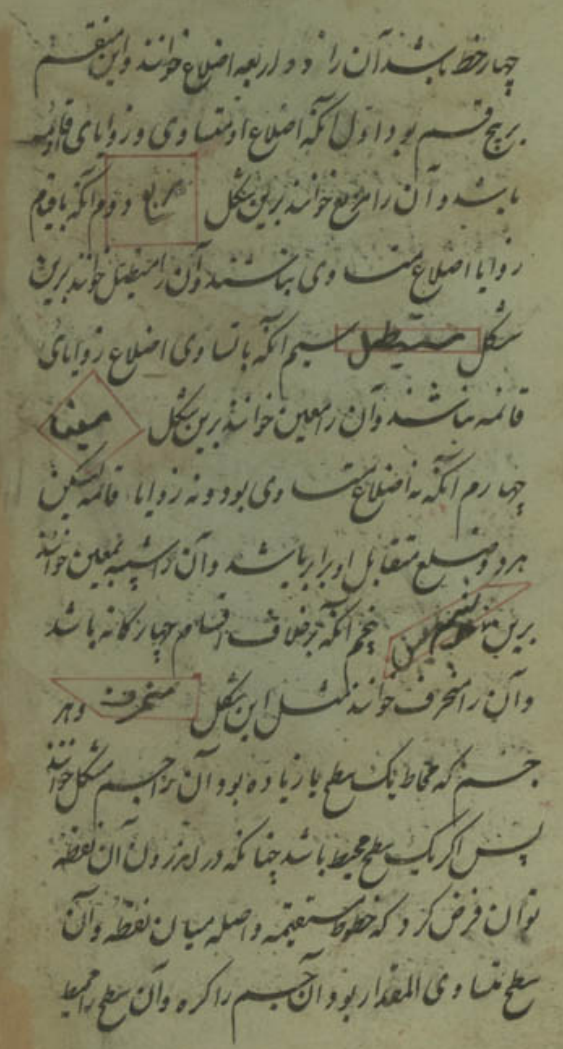 چهار خط باشد آن را ذو اربعه اضلاع خوانند و این منقسم
بر پنج قسم بود اول آنکه اضلاع او متساوی و زوایای او قائمه
باشد و آن را مربع خوانند برین شکل مربع دوم آنکه با قیام
زوایا اضلاع متساوی نباشند و آن را مستطیل خوانند برین
شکل مستطیل سیم آنکه با تساوی اضلاع زوایای
قائمه نباشند و آن را معین خوانند برین شکل معین
چهارم آنکه نه اضلاع متساوی بود و نه زوایا قائمه لیکن
هر دو ضلع متقابل او برابر باشد و آن را شبیه بمعین خوانند
برین شبیه معین پنجم آنکه بر خلاف اقسام چهارگانه باشد
و آن را منحرف خوانند مثل این شکل منحرف و هر
جسم که محاط یک سطح یا زیاده بود آن را جسم مشکل خوانند
پس اگر یک سطح محیط باشد چنانکه در اندرون آن نقطه
توان فرض کرد که خطوط مستقیمه واصله میان نقطه و آن
سطح متساوی المقدار بود آن جسم را کره و آن سطح را محیط